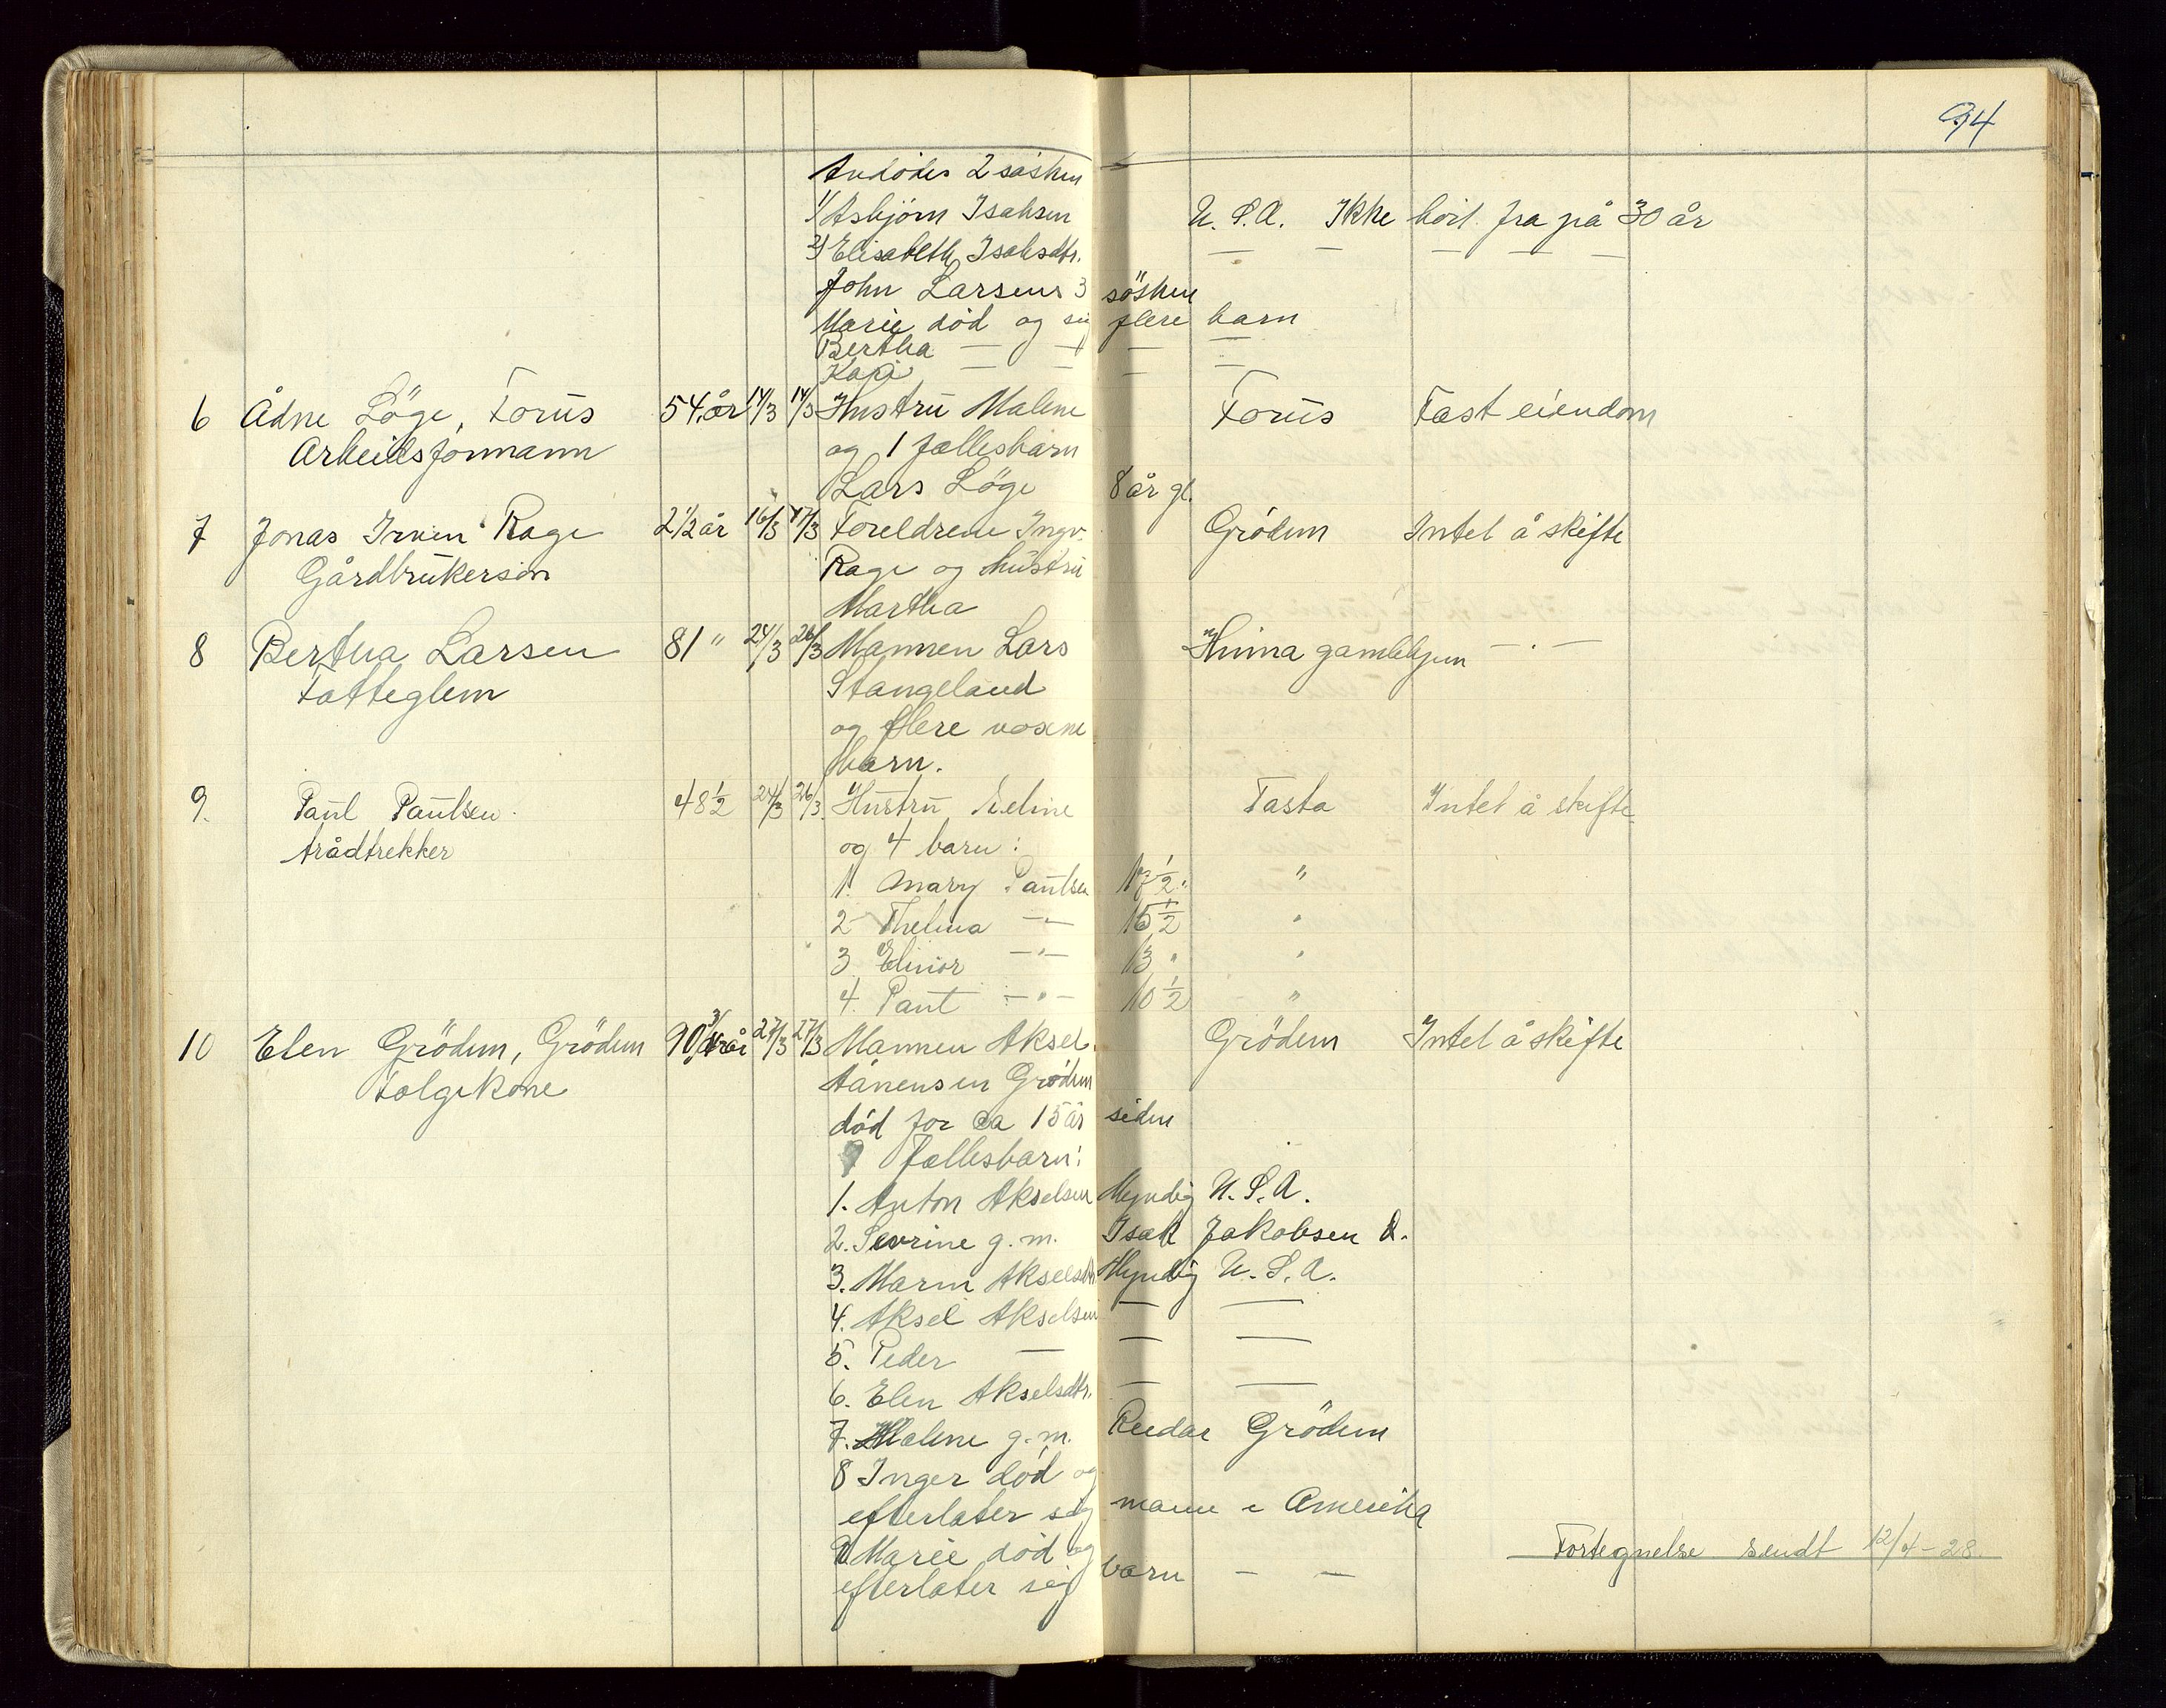 94
Avdödes 2 søsken
1/ Asbjörn Isaksen U.S.A. Ikke hört fra på 30 år
2) Elisabeth Isaksdtr. — — — — —
John Larsens 3 söskem
Marie død og flere barn
Bertha — — — —
— — — —
6 Ådne Löge, Forus 54 år 14/3 14/3 Hustru Malene Forus Fast eiendom
Arbeidsformann og 1 fællesbarn
Lars Löge 8 år gl.
7 Jonas Irvin Rage 2 1/2 år 16/3 17/3 Foreldrene Ingv. Grödem Intet å skifte
Gårdbrukersön Rage og hustru
Martha
8 Bertha Larsen 81 " 24/3 26/3 Mannen Lars Hinna gamlehjem — . —
Fatteglem Stangeland
og flere voxne
barn.
9. Paul Paulsen 48 1/2 24/3 26/3 Hustru Tasta Intet å skifte
trådtrekker og 4 barn:
1. Mary Paulsen 17 1/2 "
2 Thelma — " — 15 1/2 "
3 Elinor — " — 13 " "
4. Paul — " — 10 1/2 "
10 Elen Grödem, Grödem 90 3/4 år 27/3 27/3 Mannen Aksel Grödem Intet å skifte
Folgekone Aanensen Grödem
död for ca 15 år siden
9 Fællesbarn:
1. Anton Akselsen Myndig U.S.A.
2. Sevrine g.m. Isak Jakobsen
3. Marin Akselsdtr Myndig U.S.A.
4. Aksel Akselsen — —
5. Peder — — —
6. Elen Akselsdtr. — —
7. Malene g.m. Reidar Grödem
8 Inger död og
efterlater sig mann i Amerika
9 Marie död og
efterlater sig barn — —
Fortegnelse sendt 12/4-28.